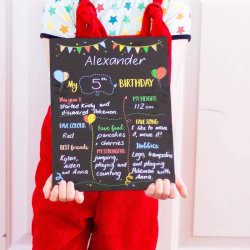 Alexander
My 5th BIRTHDAY
This year I
started Kindy and
discovered Pokemon.
MY HEIGHT:
112 cm
FAVE COLOUR:
Red
Fave food:
pancakes
+ cherries
FAVE SONG:
I like to move
it, move it!
BEST FRIENDS:
Kylan,
Aiden
and Anna
MY STRENGTHS:
jumping,
playing
and
counting
Hobbies:
Lego, trampoline
and playing
Pokemon with
Anna.